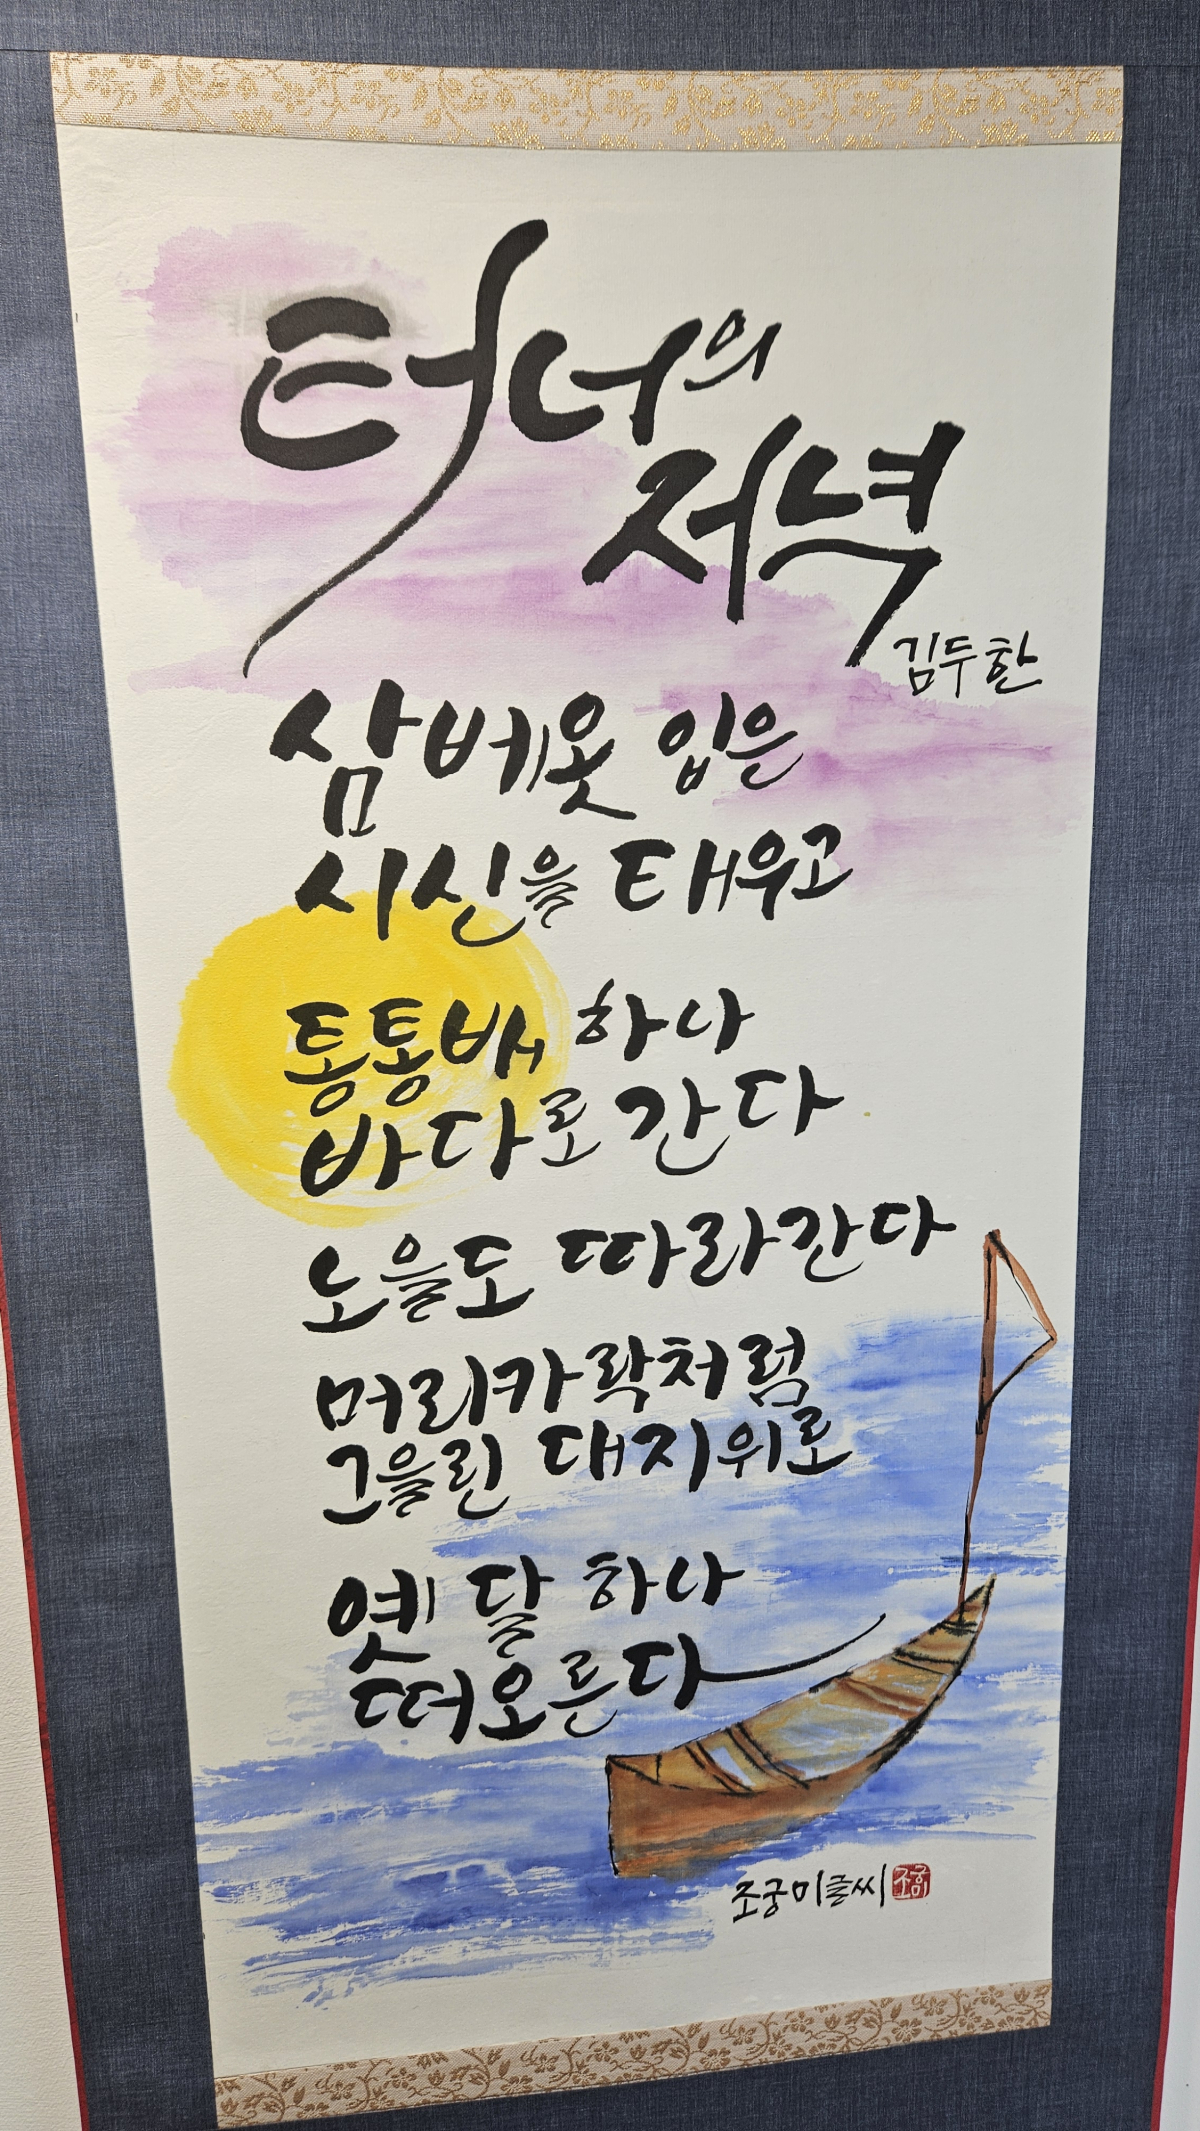 터너의
저녁
김두한
삼베옷 입은
시신을 태우고
통통배 하나
바다로 간다
노을도 따라간다
머리카락처럼
그을린 대지위로
옛 달 하나
떠오른다
조궁미글씨